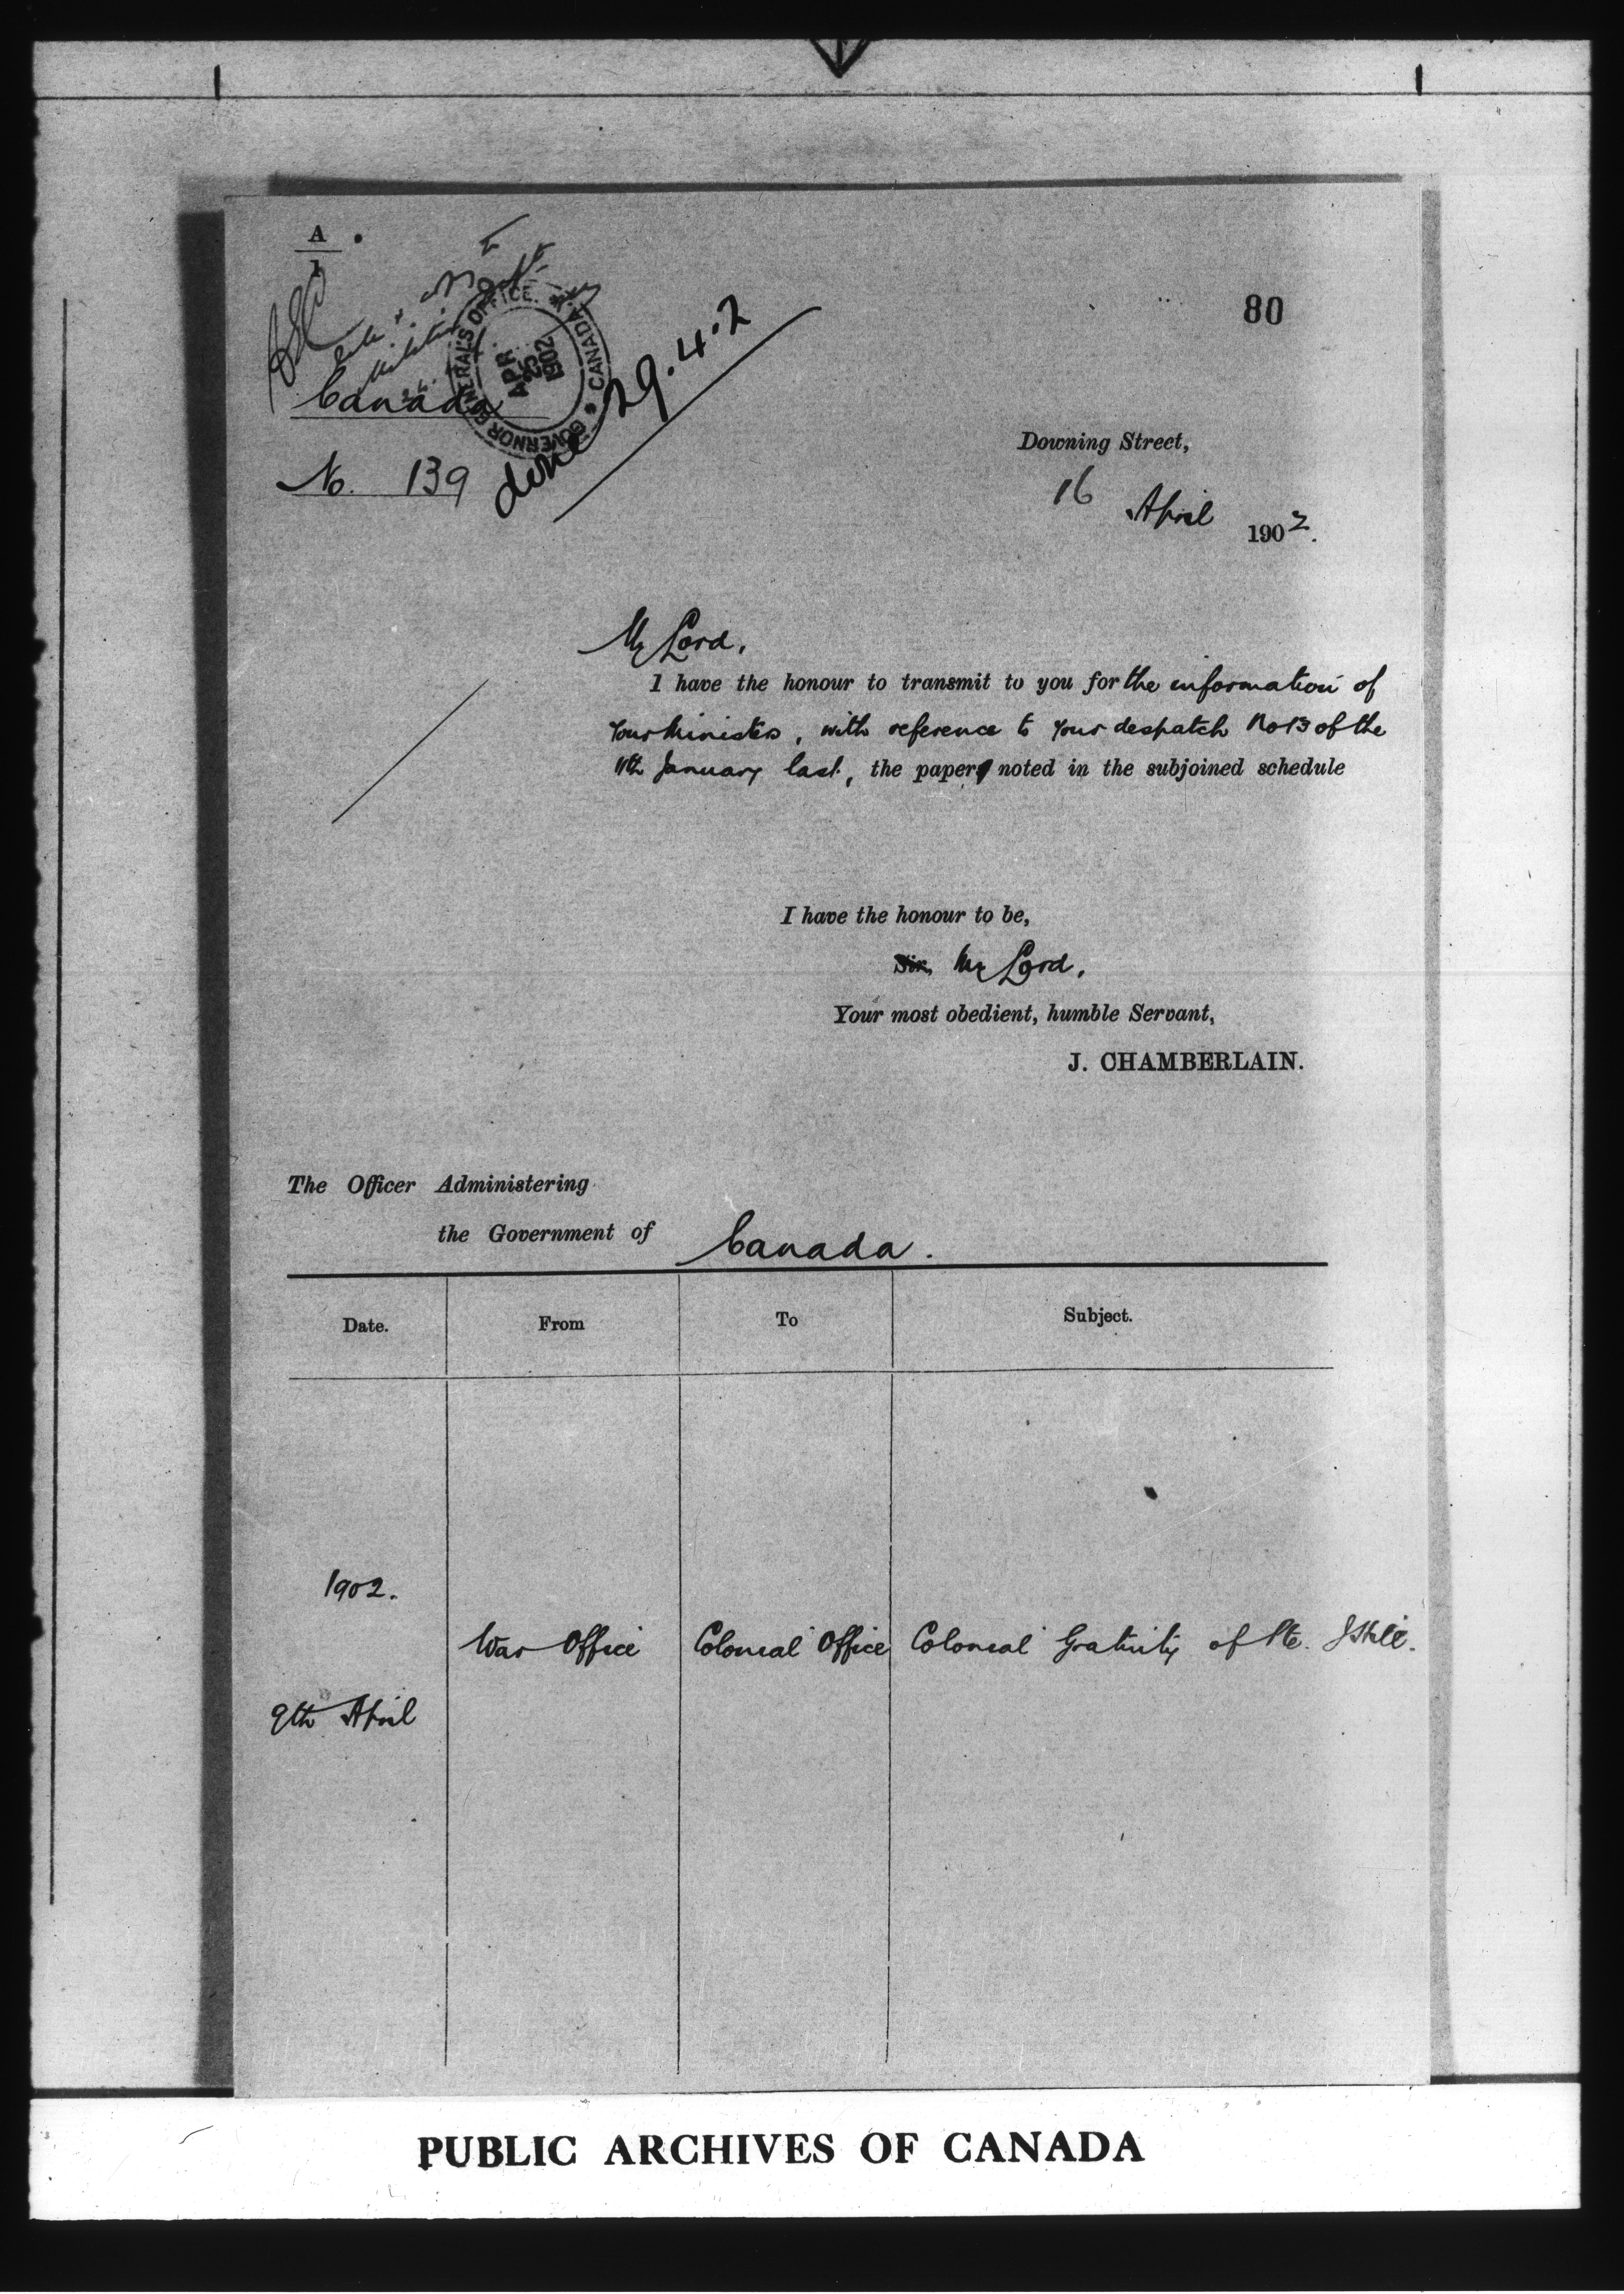 A
1
80
GOVERNOR GENERAL'S OFFICE. CANADA
APR
25
1902
Canada
No. 139
done 29.4.2
Downing Street,
16 April 1902.
My Lord,
I have the honour to transmit to you for the information of
your Ministers, with reference to your despatch No 13 of the
11th January last, the paper noted in the subjoined schedule
I have the honour to be,
Sir, My Lord,
Your most obedient, humble Servant,
J. CHAMBERLAIN.
The Officer Administering
the Government of Canada.
Date. From To Subject.
1902.
War Office Colonial Office Colonial Gratuity of Pte.
9th April
PUBLIC ARCHIVES OF CANADA